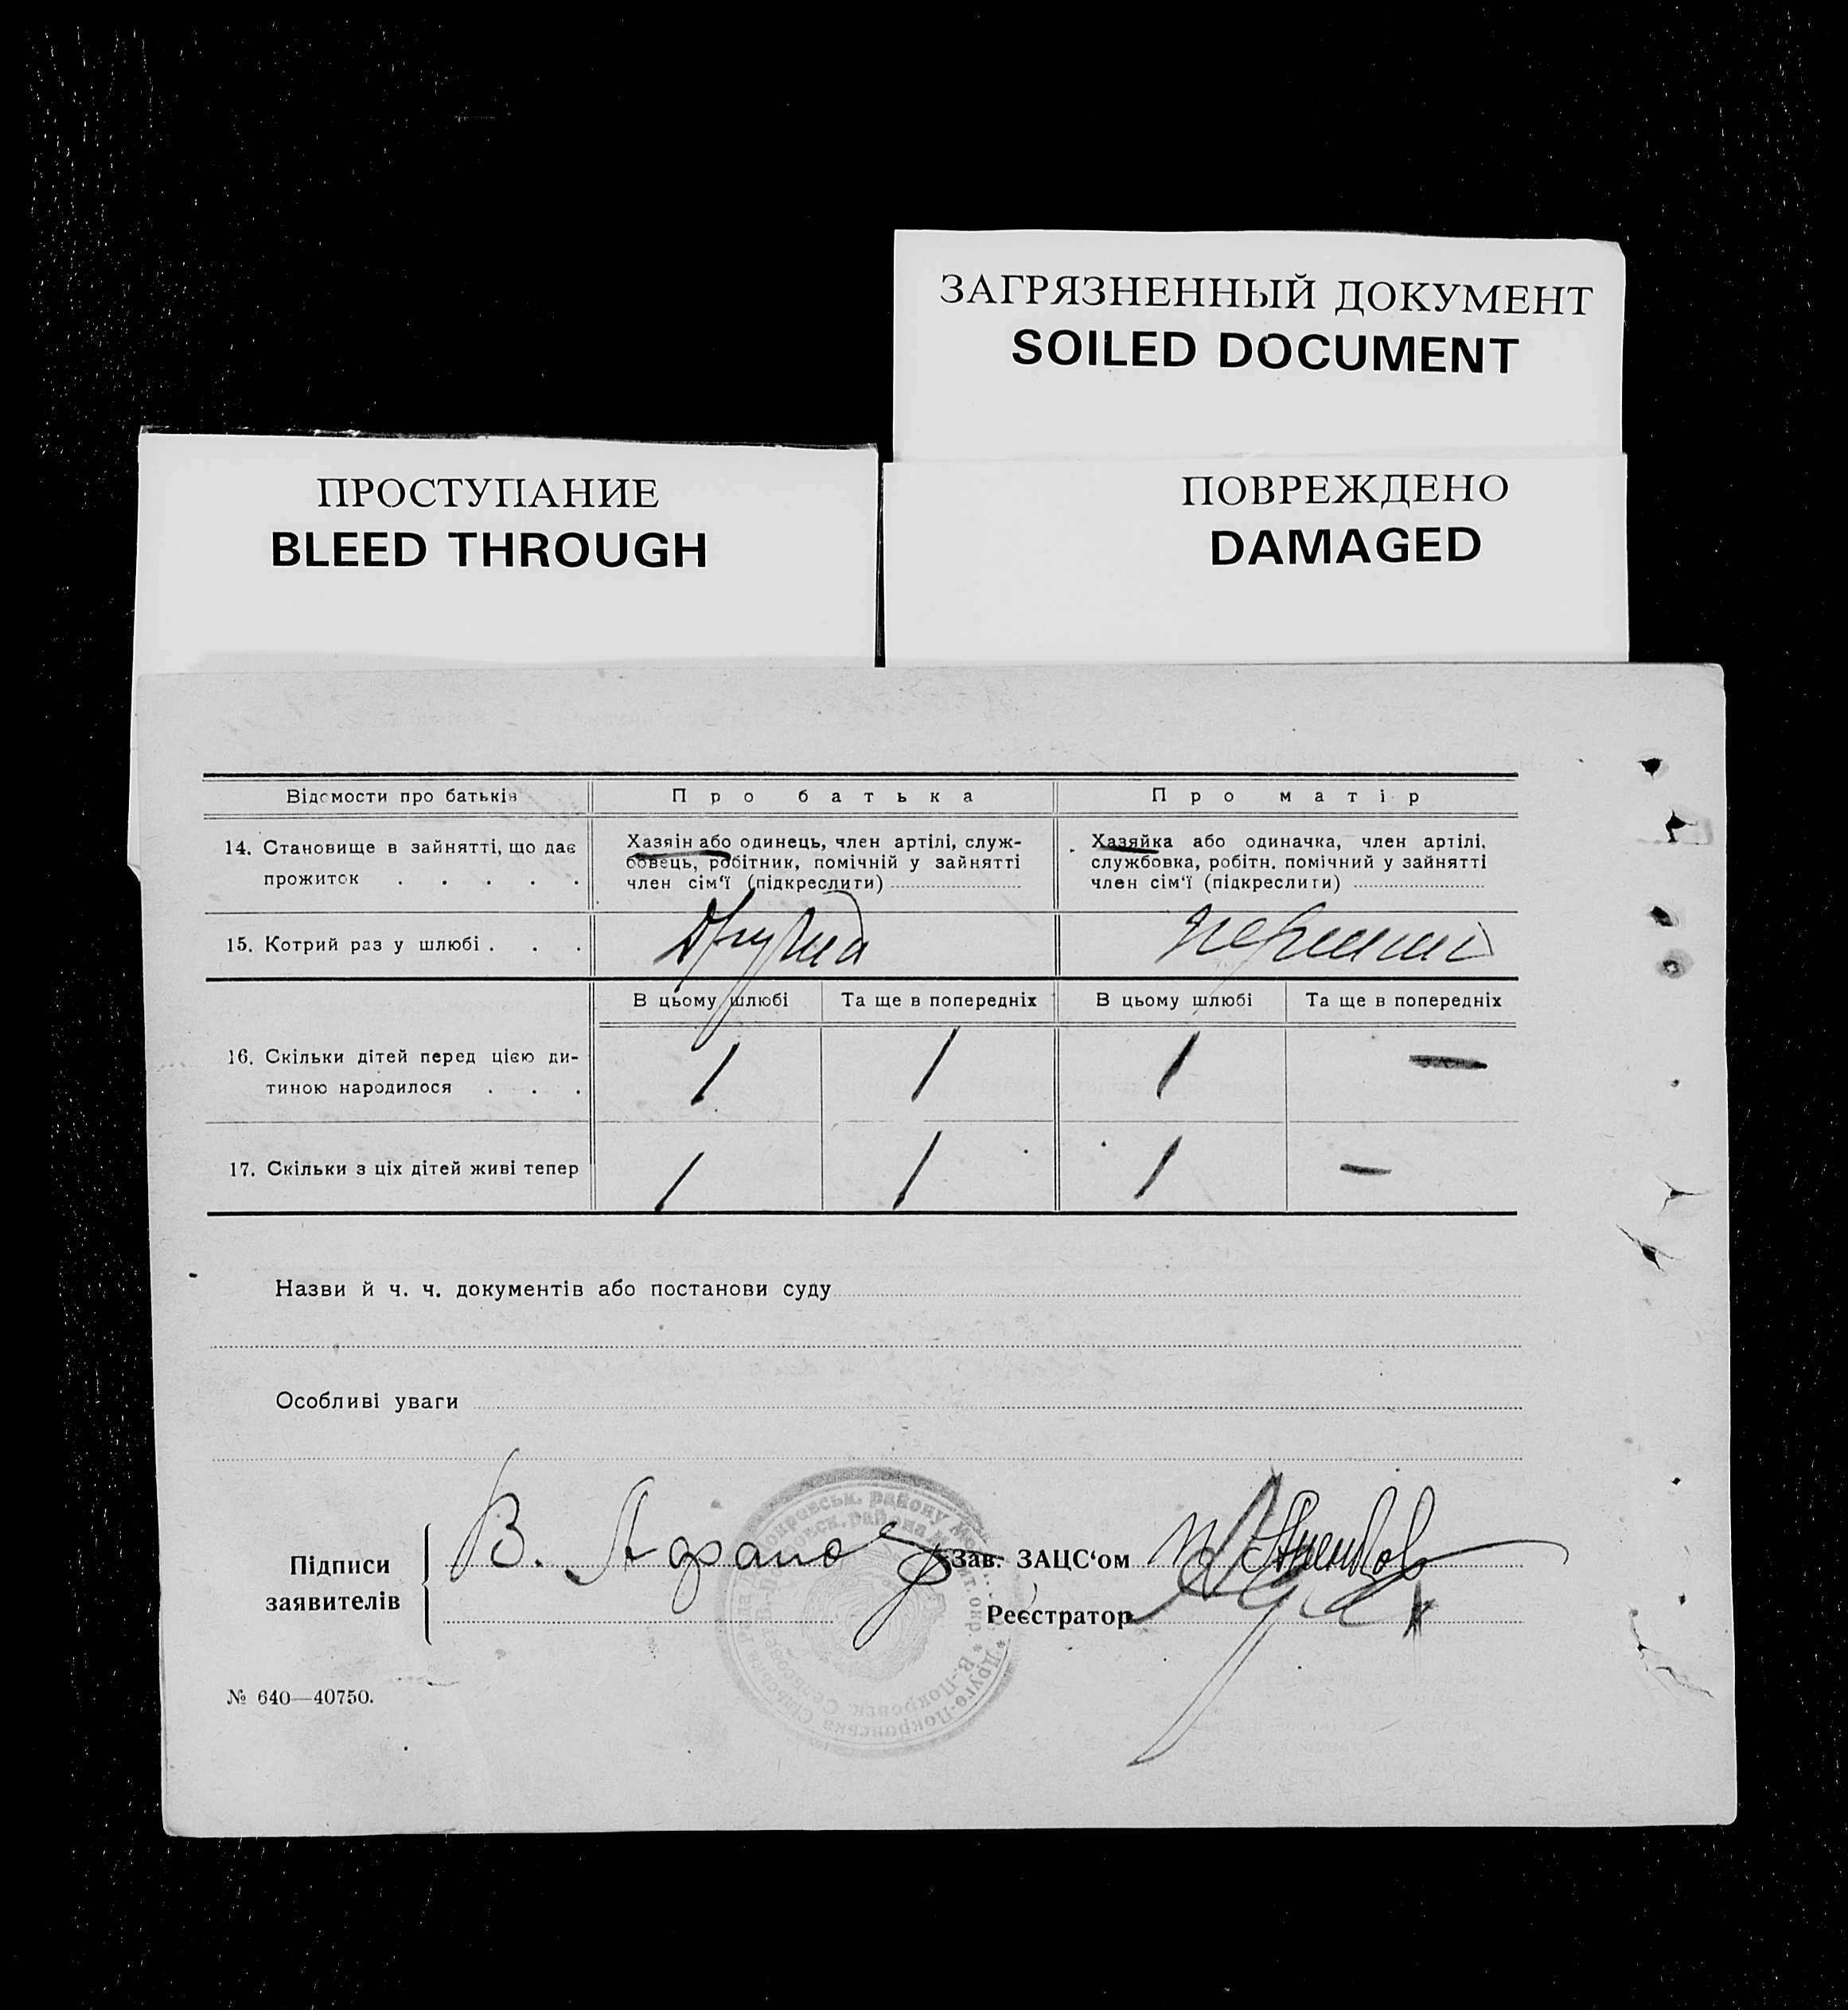 ЗАГРЯЗНЕННЫЙ ДОКУМЕНТ
SOILED DOCUMENT
ПРОСТУПАНИЕ
BLEED THROUGH
ПОВРЕЖДЕНО
DAMAGED
Відомости про батьків
Про батька
Про матір
14. Становище в зайнятті, що дає
прожиток . . . . .
Хазяін або одинець, член артілі, служ-
бовець, робітник, помічній у зайнятті
член сім‘ї (підкреслити)
Хазяйка або одиначка, член артілі,
службовка, робітн. помічний у зайнятті
член сім‘ї (підкреслити)
15. Котрий раз у шлюбі . . .
Перший
В цьому шлюбі
Та ще в попередніх
В цьому шлюбі
Та ще в попередніх
16. Скільки дітей перед цією ди-
тиною народилося . . .
1
1
1
—
17. Скільки з ціх дітей живі тепер
1
1
1
—
Назви й ч. ч. документів або постанови суду
Особливі уваги
Підписи
заявителів
В.
Зав. ЗАЦС‘ом
Реєстратор
№ 640—40750.